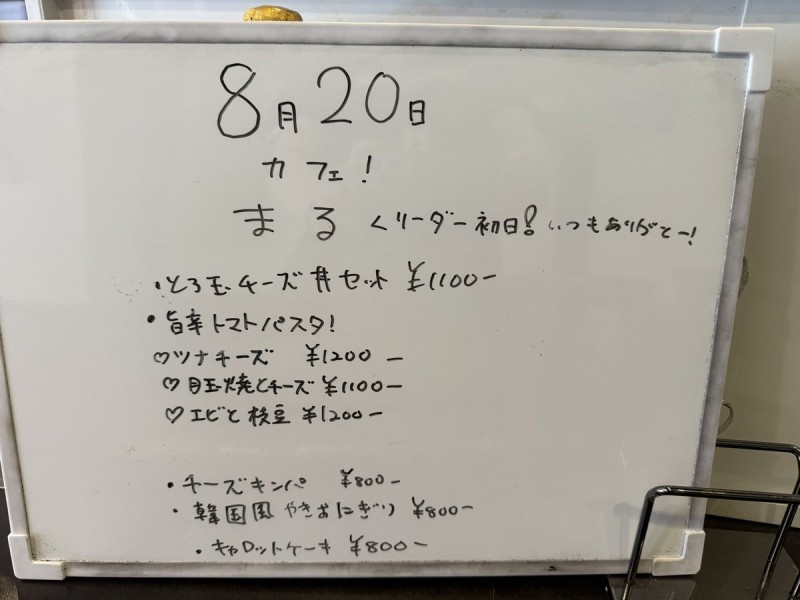 8月20日
カフェ!
まる くリーダー初日! いつもありがとー!
・とろ玉チーズ丼セット ¥1100-
・旨辛トマトパスタ!
♡ツナチーズ ¥1200-
♡目玉焼とチーズ ¥1100-
♡エビと枝豆 ¥1200-
・チーズキンパ ¥800-
・韓国風やきおにぎり ¥800-
・キャロットケーキ ¥800-